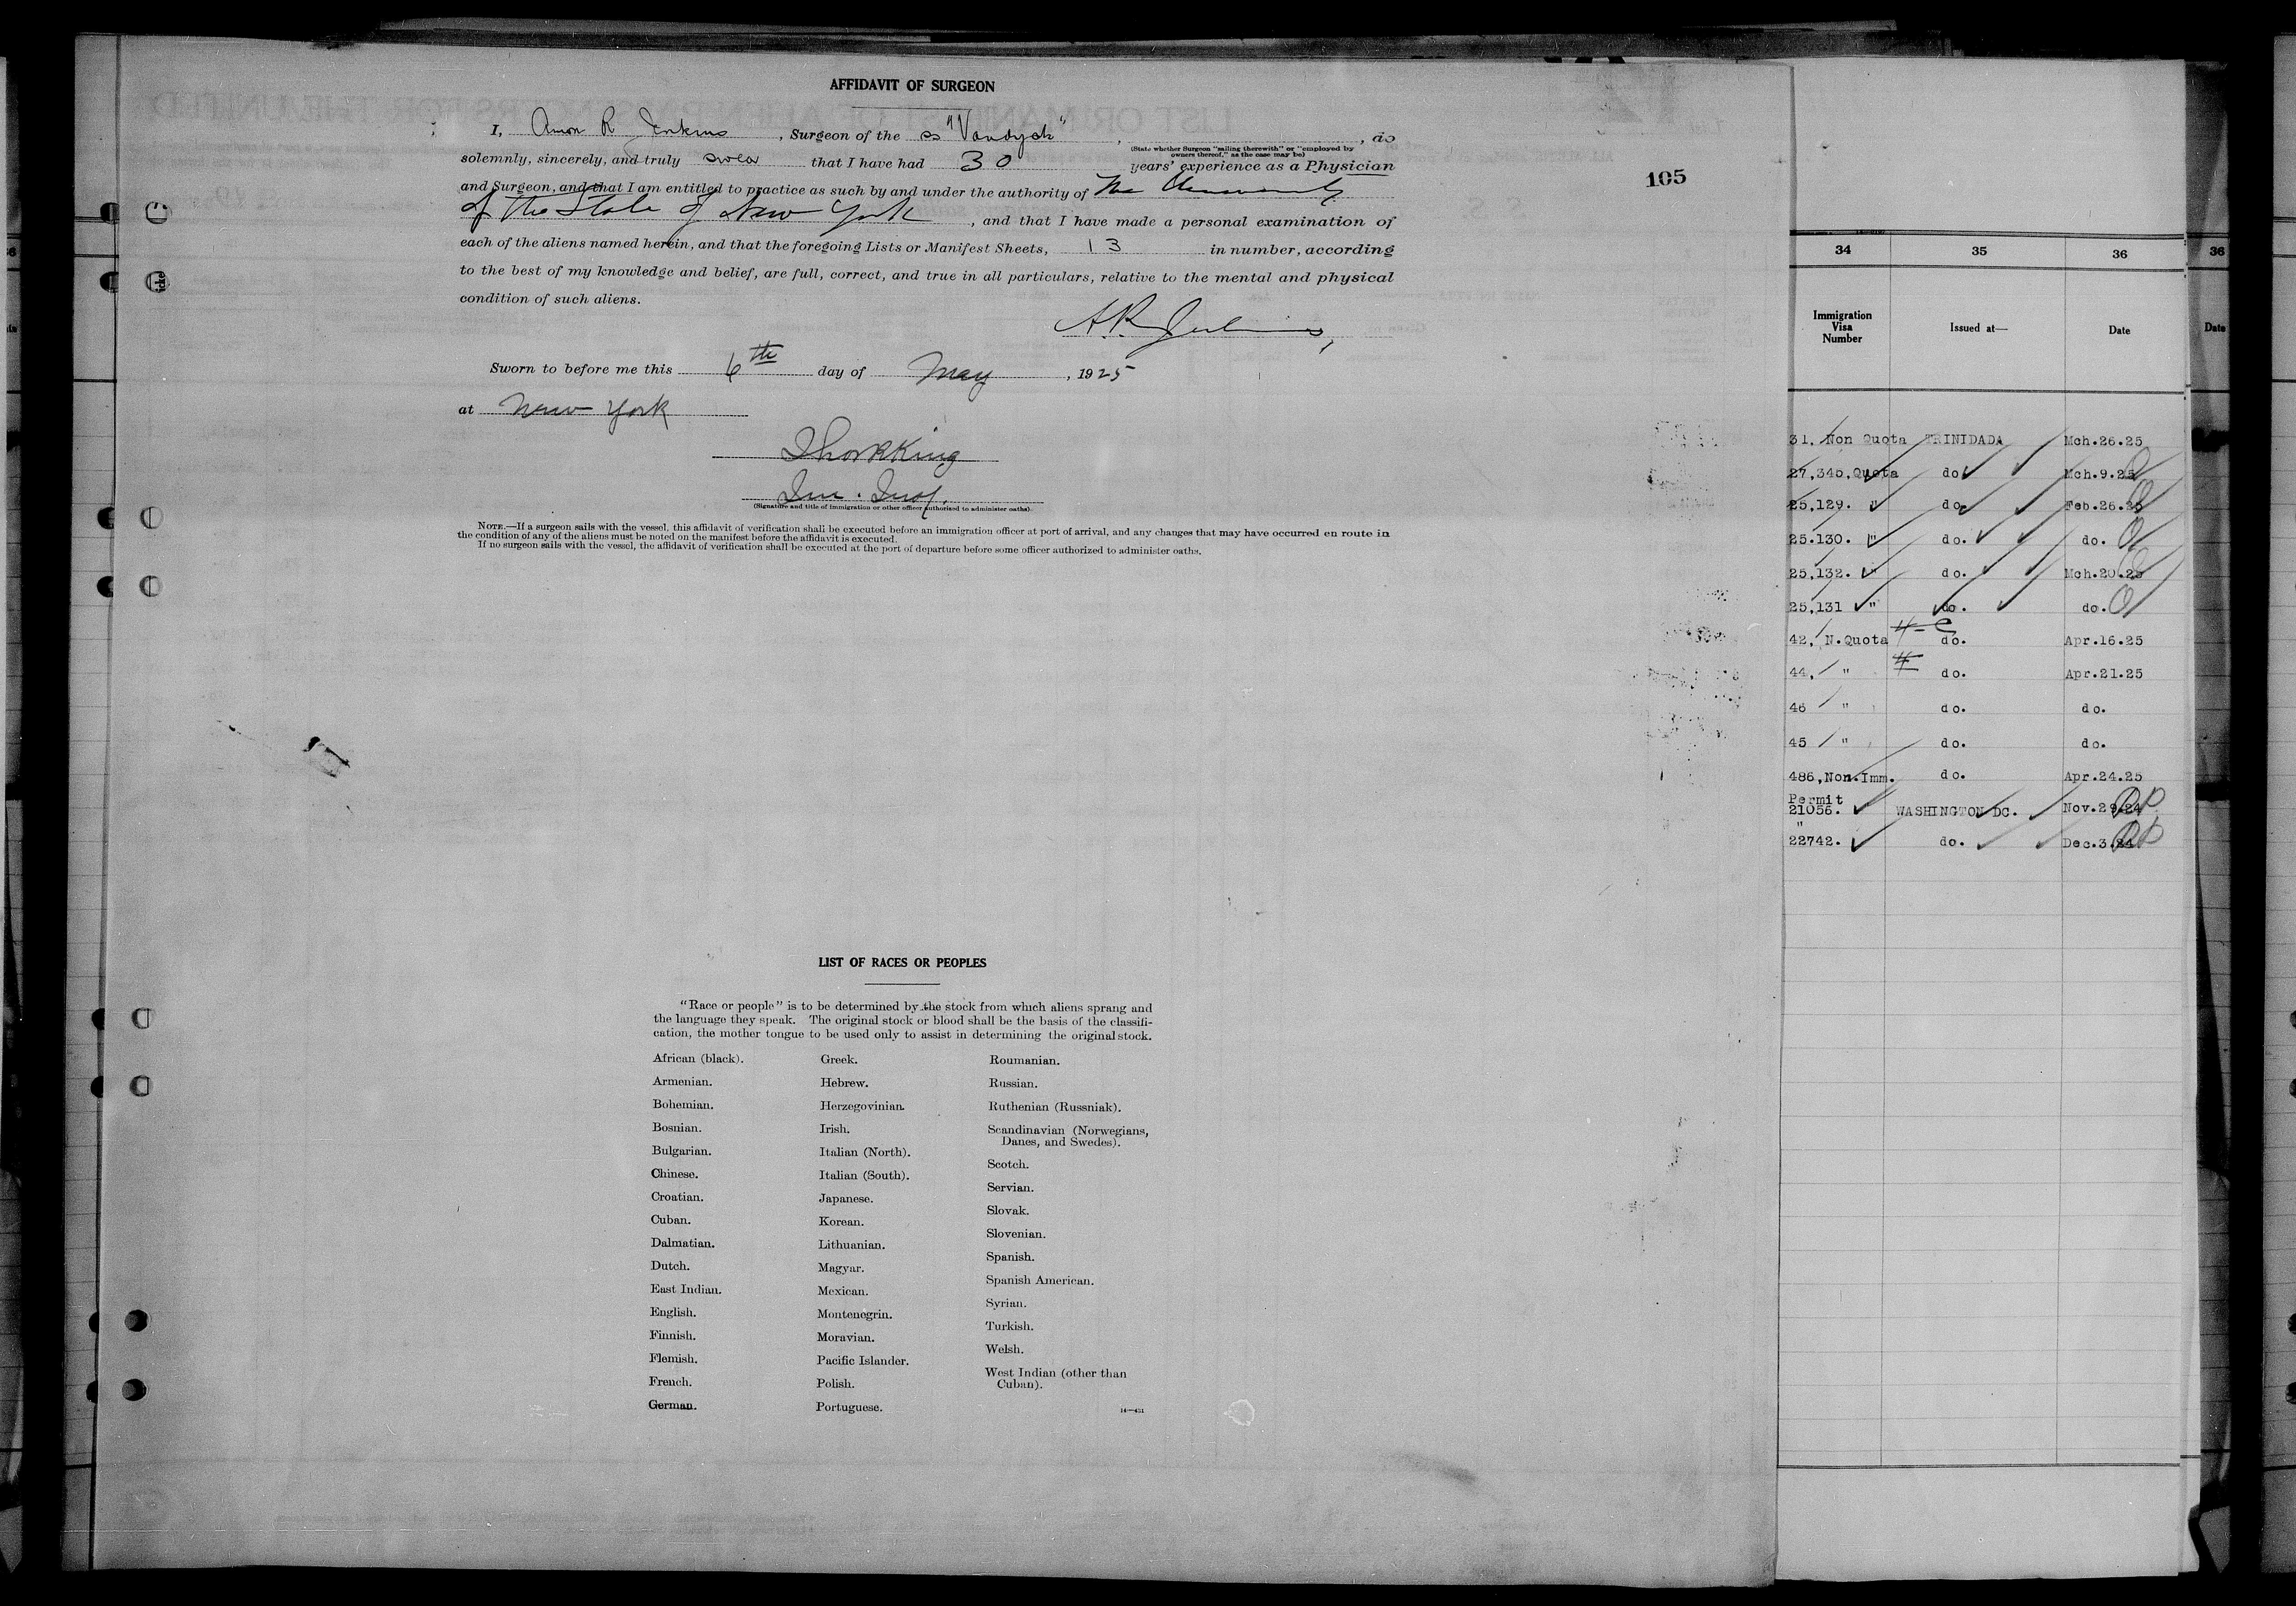 AFFIDAVIT OF SURGEON
I, R Jenkins, Surgeon of the ss "Vandyck", do
(State whether Surgeon "sailing therewith" or "employed by
owners thereof," as the case may be)
solemnly, sincerely, and truly swear that I have had 30 years' experience as a Physician
and Surgeon, and that I am entitled to practice as such by and under the authority of The University
of the State of New York, and that I have made a personal examination of
each of the aliens named herein, and that the foregoing Lists or Manifest Sheets, 13 in number, according
to the best of my knowledge and belief, are full, correct, and true in all particulars, relative to the mental and physical
condition of such aliens.
A.R. Jenkins,
Sworn to before me this 6th day of May, 1925
at New York
King
(Signature and title of immigration or other officer authorized to administer oaths).
NOTE.—If a surgeon sails with the vessel, this affidavit of verification shall be executed before an immigration officer at port of arrival, and any changes that may have occurred en route in
the condition of any of the aliens must be noted on the manifest before the affidavit is executed.
If no surgeon sails with the vessel, the affidavit of verification shall be executed at the port of departure before some officer authorized to administer oaths.
LIST OF RACES OR PEOPLES
"Race or people" is to be determined by the stock from which aliens sprang and
the language they speak. The original stock or blood shall be the basis of the classifi-
cation, the mother tongue to be used only to assist in determining the original stock.
African (black).
Armenian.
Bohemian.
Bosnian.
Bulgarian.
Chinese.
Croatian.
Cuban.
Dalmatian.
Dutch.
East Indian.
English.
Finnish.
Flemish.
French.
German.
Greek.
Hebrew.
Herzegovinian.
Irish.
Italian (North).
Italian (South).
Japanese.
Korean.
Lithuanian.
Magyar.
Mexican.
Montenegrin.
Moravian.
Pacific Islander.
Polish.
Portuguese.
Roumanian.
Russian.
Ruthenian (Russniak).
Scandinavian (Norwegians,
Danes, and Swedes).
Scotch.
Servian.
Slovak.
Slovenian.
Spanish.
Spanish American.
Syrian.
Turkish.
Welsh.
West Indian (other than
Cuban).
14—451
105
34 35 36
Immigration
Visa
Number
Issued at—
Date
31, Non Quota TRINIDADA Mch.26.25
27,345,Quota do Mch.9.25
25,129. " do. Feb.26.25
25.130. " do. do.
25,132. " do. Mch.20.25
25,131 " do. do.
42, N.Quota do. Apr.16.25
44, " do. Apr.21.25
46 " do. do.
45 " do. do.
486,Non.Imm. do. Apr.24.25
Permit
21056. WASHINGTON DC. Nov.29.24
"
22742. do. Dec.3.24
36
Date